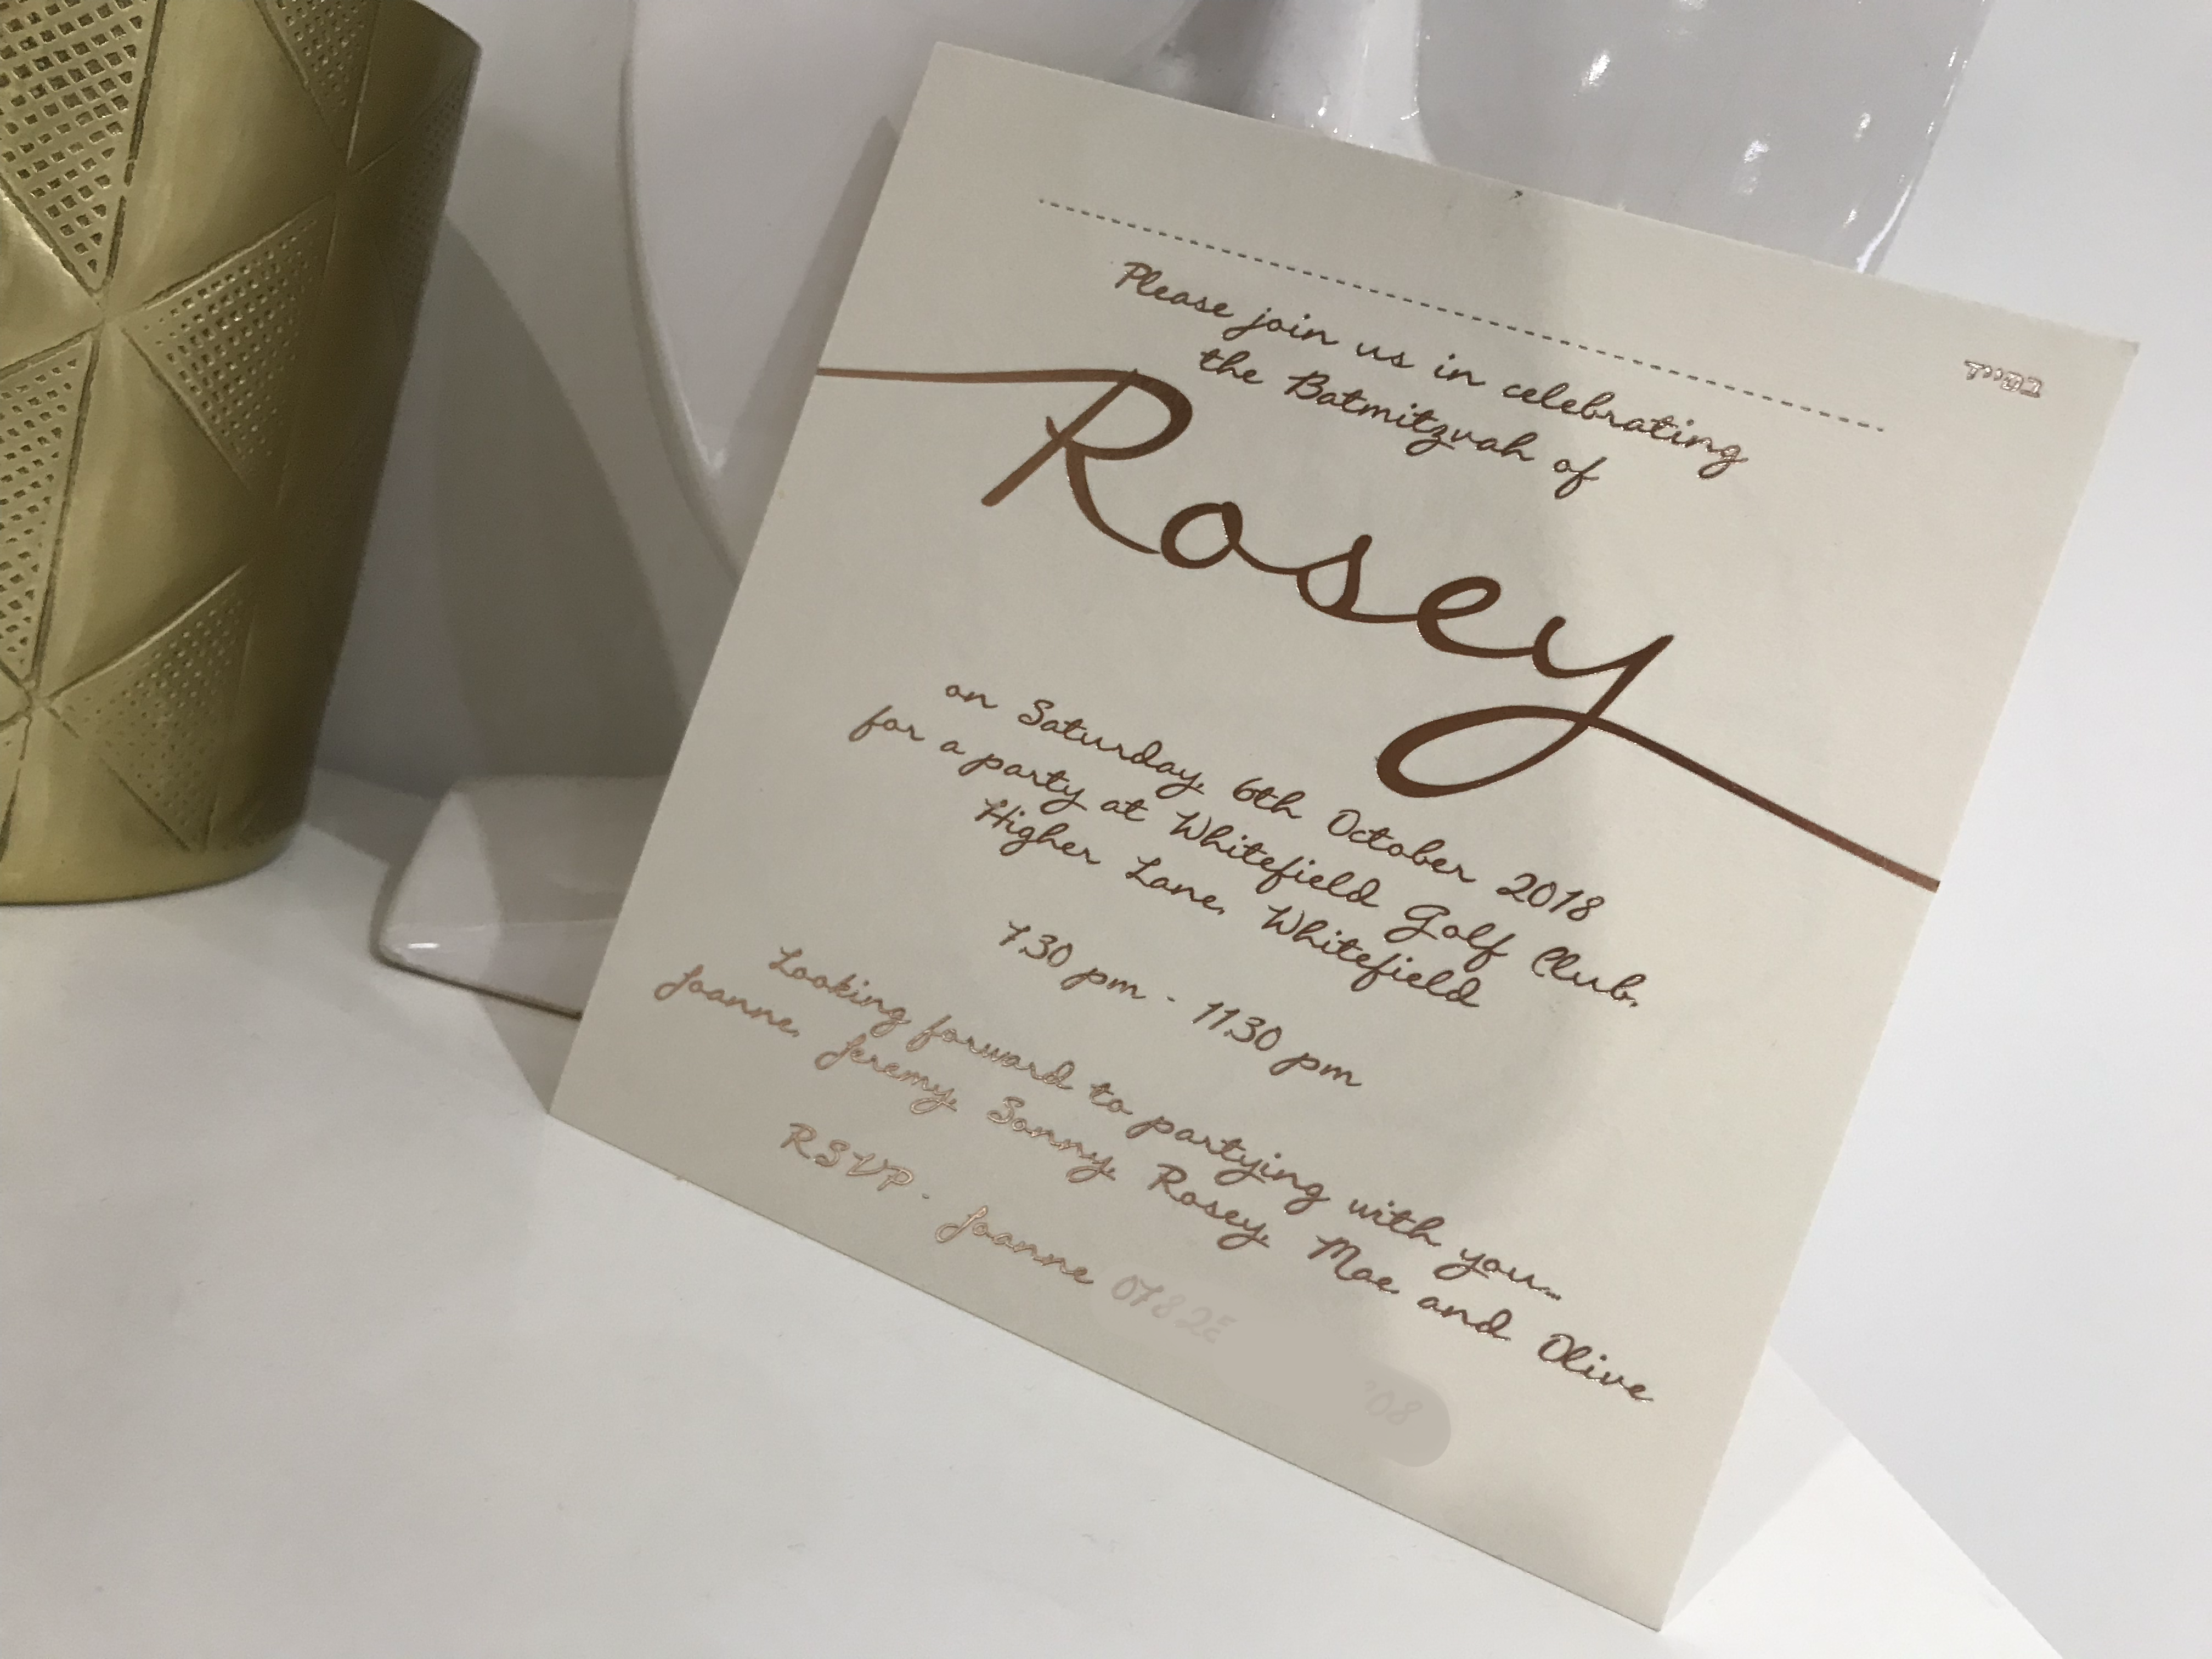 בסייד
Please join us in celebrating
the Batmitzvah of
Rosey
on Saturday, 6th October 2018
for a party at Whitefield Golf Club,
Higher Lane, Whitefield
7.30 pm - 11.30 pm
Looking forward to partying with you...
Joanne, Jeremy, Sonny, Rosey, Moe and Olive
RSVP - Joanne